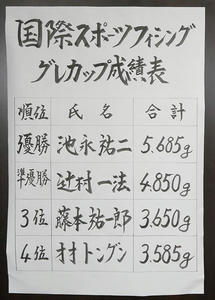 国際スポーツフィシング
グレカップ成績表
順位 氏名 合計
優勝 池永祐二 5.685g
準優勝 辻村一法 4.850g
3位 藤本祐一郎 3.650g
4位 オオトングン 3.585g